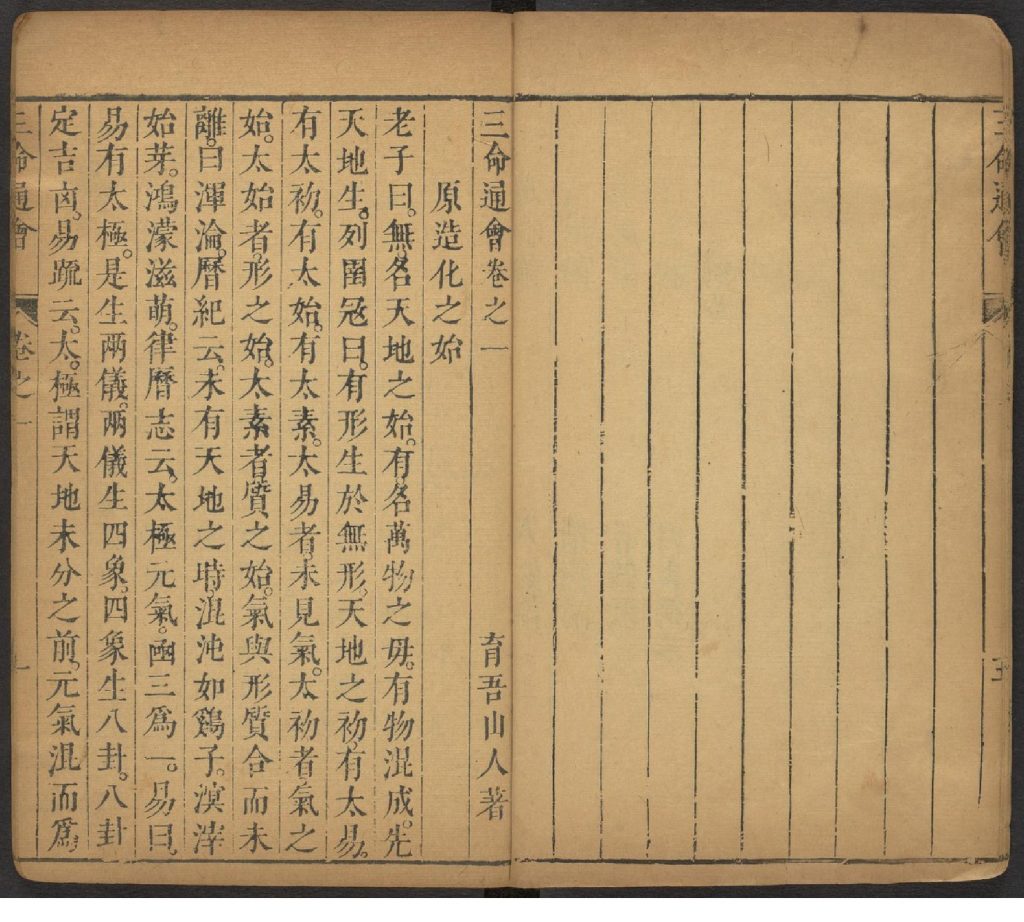 三命通會
三命通會卷之一 育吾山人著
原造化之始
老子曰。無名天地之始。有名萬物之毋。有物混成。先
天地生。列圄冦曰。有形生於無形。天地之初。有太易。
有太初。有太始。有太素。太易者。未見氣。太初者。氣之
始。太始者。形之始。太素者質之始。氣與形質合而未
離。曰渾淪。曆紀云。未有天地之時。混沌如鷄子。溟涬
始芽。鴻濛滋萌。律曆志云。太極元氣。函三爲一。易曰。
易有太極。是生兩儀。兩儀生四象。四象生八卦。八卦
定吉凶。易疏云。太。極謂天地未分之前。元氣混而爲
三命通會 卷之一 一